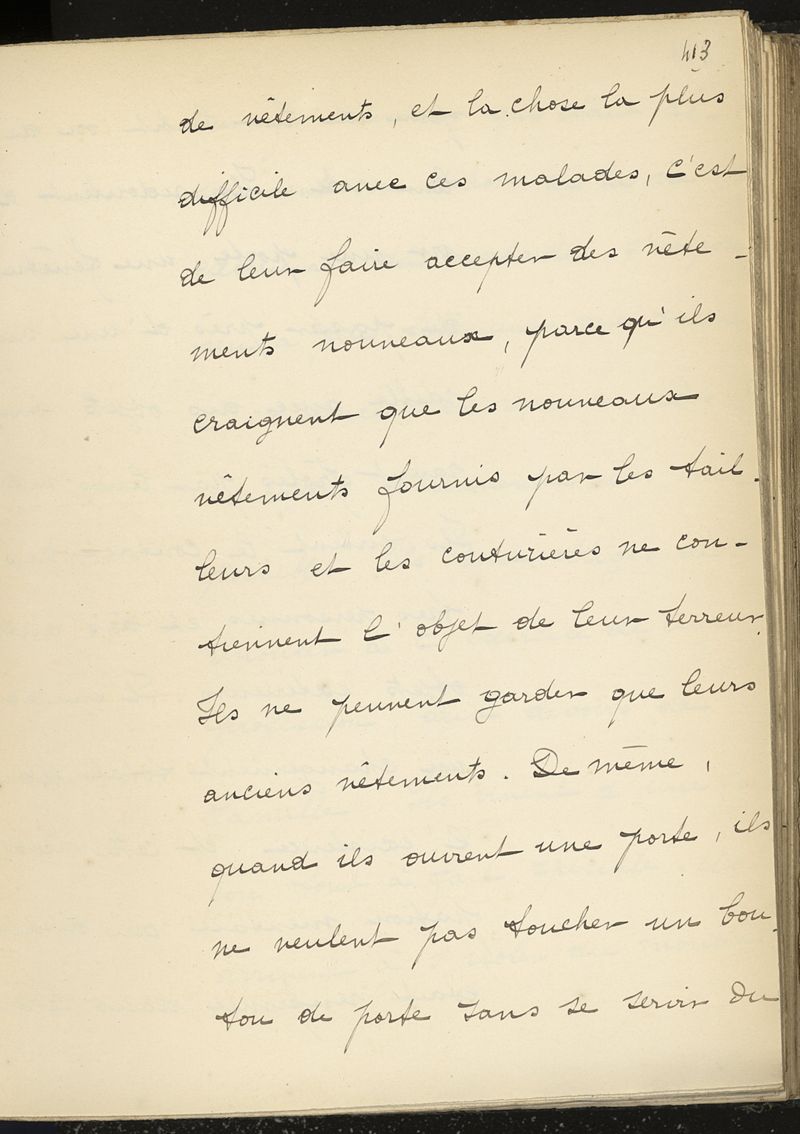 413
de vêtements, et la chose la plus
difficile avec ces malades, c'est
de leur faire accepter des vête-
ments nouveaux, parce qu'ils
craignent que les nouveaux
vêtements fournis par les tail-
leurs et les couturières ne con-
tiennent l'objet de leur terreur.
Ils ne peuvent garder que leurs
anciens vêtements. De même,
quand ils ouvrent une porte, ils
ne veulent pas toucher un bou-
ton de porte sans se servir du